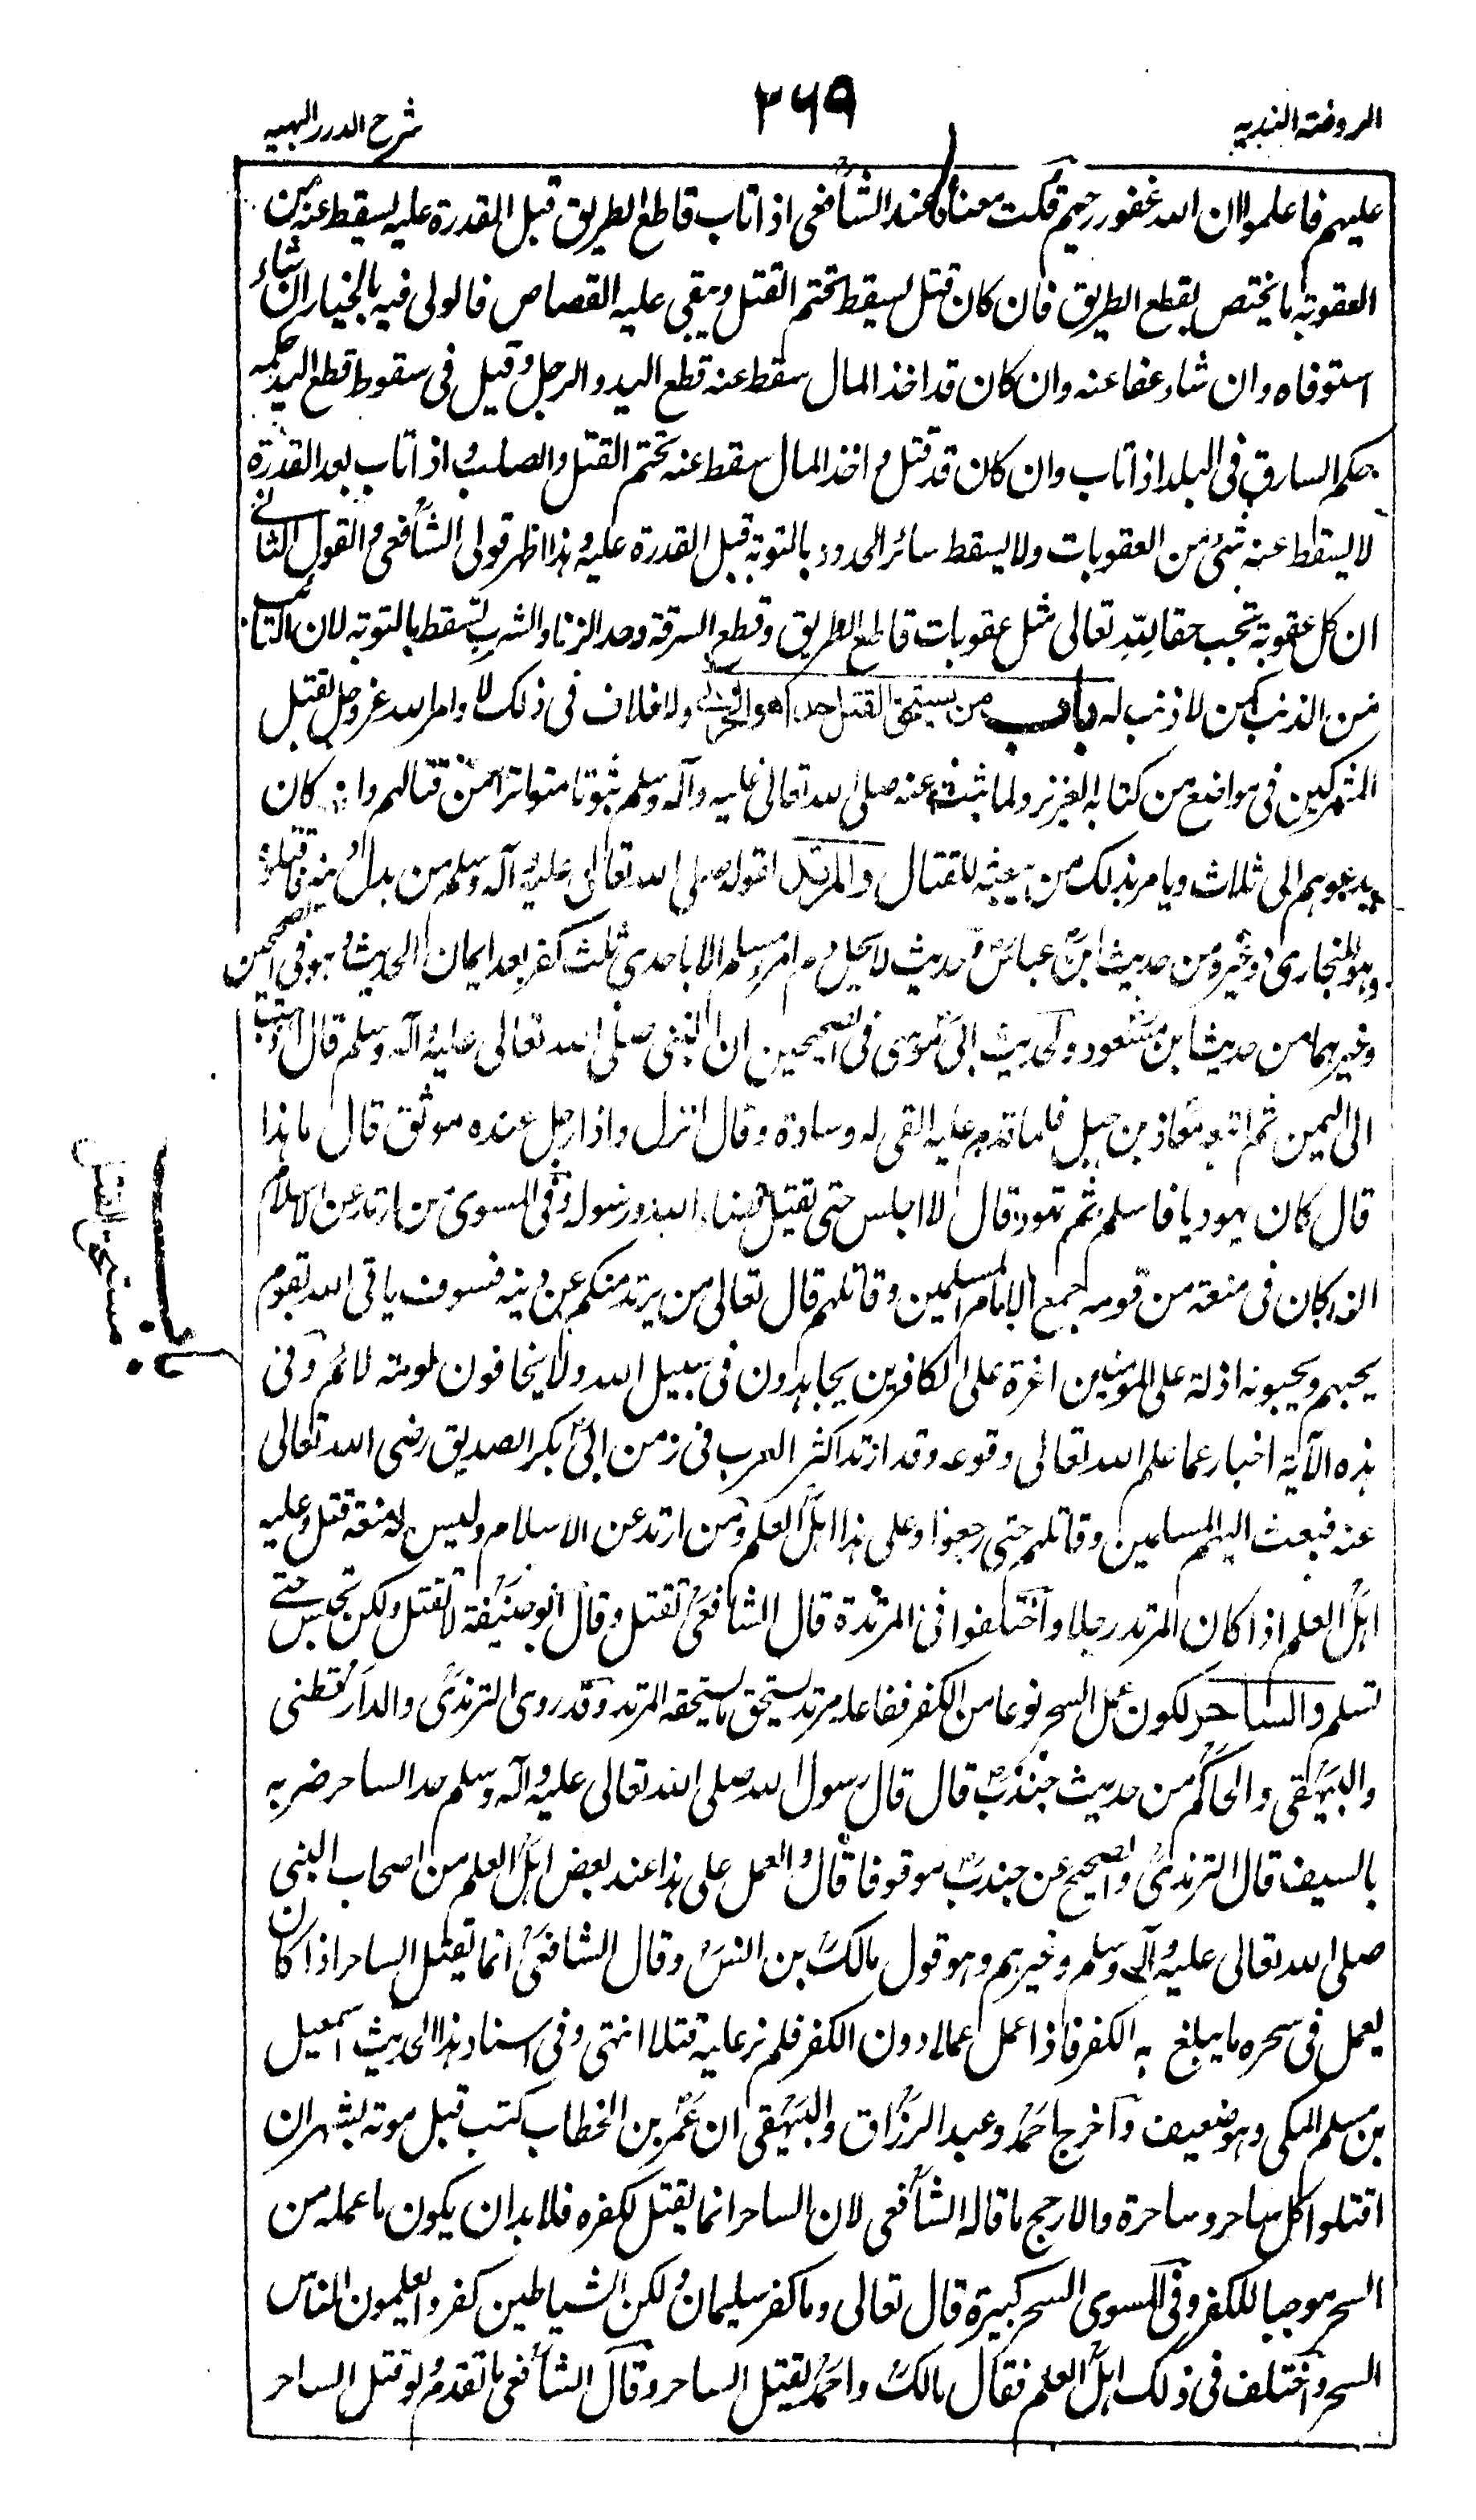 الروضة الندية
۳۶۹
شرح الدرر البهية
عليهم فاعلموا ان الله غفور رحيم قلت معناه عند الشافعي اذا تاب قاطع الطريق قبل المقدرة عليه يسقط عنه من
العقوبة ما يختص بقطع الطريق فان كان قتل يسقط تحتم القتل ويبقى عليه القصاص فالولى فيه بالخيار ان شاء
استوفاه وان شاء عفا عنه وان كان قد اخذ المال سقط عنه قطع اليد والرجل وقيل في سقوط قطع اليد حكمه
حكم السارق في البلد اذا تاب وان كان قد قتل واخذ المال سقط عنه تحتم القتل والصلب واذا تاب بعد القدرة
لا يسقط عنه شئ من العقوبات ولا يسقط سائر الحدود بالتوبة قبل القدرة عليه وهذا اظهر قولى الشافعي والقول الثاني
ان كل عقوبة تجب حقا لله تعالى مثل عقوبات قاطع الطريق وقطع السرقة وحد الزنا والشرب تسقط بالتوبة لان التائب
من الذنب كمن لا ذنب له باب من يستحق القتل حدا هو الحربى ولا خلاف في ذلك لاوامر الله عز وجل بقتل
المشركين في مواضع من كتابه العزيز ولما ثبت عنه صلى الله تعالى عليه وآله وسلم ثبوتا متواترا من قتالهم وانه كان
يدعوهم الى ثلاث ويامر بذلك من يبعثه للقتال والمرتد لقوله صلى الله تعالى عليه وآله وسلم من بدل دينه فاقتلوه
وهو للبخارى وغيره من حديث ابن عباس وحديث لا يحل دم امرء مسلم الا باحدى ثلث كفر بعد ايمان الحديث وهو فى الصحيحين
وغيرهما من حديث ابن مسعود ولحديث ابى موسى فى الصحيحين ان النبى صلى الله تعالى عليه وآله وسلم قال له اذهب
الى اليمن ثم اتبعه معاذ بن جبل فلما قدم عليه القى له وسادة وقال انزل واذا رجل عنده موثق قال ما هذا
قال كان يهوديا فاسلم ثم تهود قال لا اجلس حتى يقتل قضاء الله ورسوله وفى المسوى من ارتد عن الاسلام
ان كان فى منعة من قومه جمع الامام المسلمين وقاتلهم قال تعالى من يرتد منكم عن دينه فسوف ياتى الله بقوم
يحبهم ويحبونه اذلة على المؤمنين اعزة على الكافرين يجاهدون فى سبيل الله ولا يخافون لومة لائم وفى
هذه الآية اخبار عما علم الله تعالى وقوعه وقد ارتد اكثر العرب فى زمن ابى بكر الصديق رضى الله تعالى
عنه فبعث اليهم المسلمين وقاتلهم حتى رجعوا وعلى هذا اهل العلم ومن ارتد عن الاسلام وليس له منعة قتل وعليه
اهل العلم اذا كان المرتد رجلا واختلفوا فى المرتدة قال الشافعى تقتل وقال ابو حنيفة لا تقتل ولكن تحبس حتى
تسلم والساحر لكون عمل السحر نوعا من الكفر ففاعله مرتد يستحق ما يستحقه المرتد وقد روى الترمذى والدارقطنى
والبيهقى والحاكم من حديث جندب قال قال رسول الله صلى الله تعالى عليه وآله وسلم حد الساحر ضربه
بالسيف قال الترمذى والصحيح عن جندب موقوفا قال والعمل على هذا عند بعض اهل العلم من اصحاب النبى
صلى الله تعالى عليه وآله وسلم وغيرهم وهو قول مالك بن انس وقال الشافعى انما يقتل الساحر اذا كان
يعمل فى سحره ما يبلغ به الكفر فاذا عمل عملا دون الكفر فلم نر عليه قتلا انتهى وفى اسناد هذا الحديث اسمعيل
بن مسلم المكى وهو ضعيف واخرج احمد وعبد الرزاق والبيهقى ان عمر بن الخطاب كتب قبل موته بشهر ان
اقتلوا كل ساحر وساحرة والارجح ما قاله الشافعى لان الساحر انما يقتل لكفره فلا بد ان يكون ما عمله من
السحر موجبا للكفر وفى المسوى السحر كبيرة قال تعالى وما كفر سليمان ولكن الشياطين كفروا يعلمون الناس
السحر واختلف فى ذلك اهل العلم فقال مالك واحمد يقتل الساحر وقال الشافعى ما تقدم ولو قتل الساحر
باب
من يستحق القتل